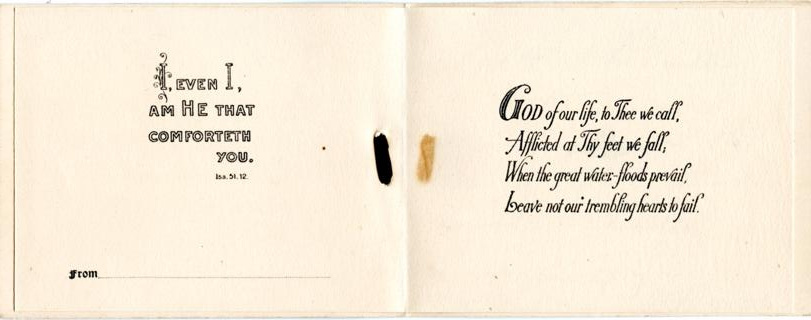 I, EVEN I,
AM HE THAT
COMFORTETH
YOU.
Isa. 51. 12.
From
GOD of our life, to Thee we call,
Afflicted at Thy feet we fall;
When the great water-floods prevail,
Leave not our trembling hearts to fail.